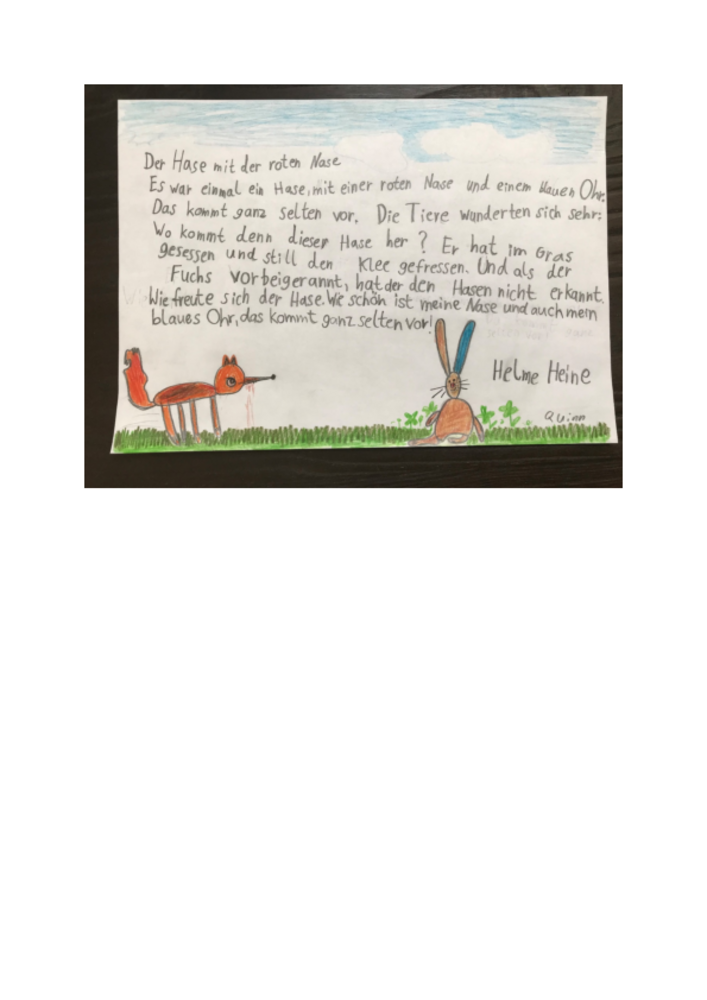 Der Hase mit der roten Nase
Es war einmal ein Hase, mit einer roten Nase und einem blauen Ohr.
Das kommt ganz selten vor. Die Tiere wunderten sich sehr:
Wo kommt denn dieser Hase her? Er hat im Gras
gesessen und still den Klee gefressen. Und als der
Fuchs vorbeigerannt, hat der den Hasen nicht erkannt.
Wie freute sich der Hase. Wie schön ist meine Nase und auch mein
blaues Ohr, das kommt ganz selten vor!
Helme Heine
Quinn